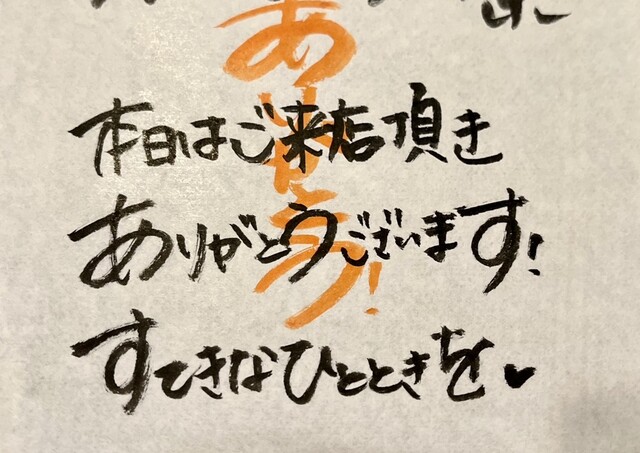 本日はご来店頂き
ありがとうございます!
すてきなひとときを♥